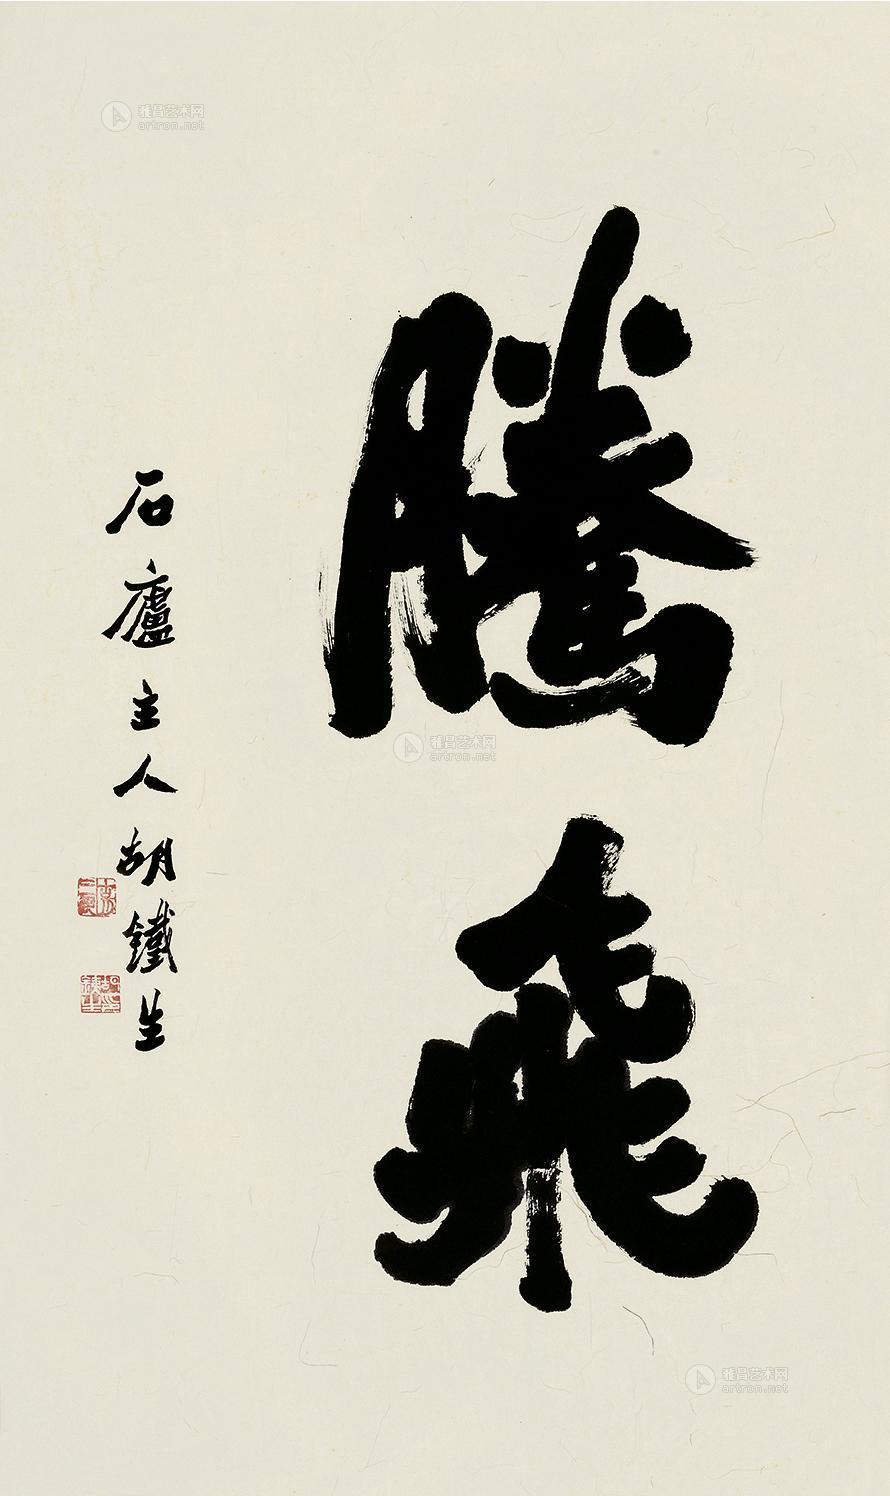 騰飛
石廬主人胡鐵生
雅昌艺术网
artron.net
雅昌艺术网
artron.net
雅昌艺术网
artron.net